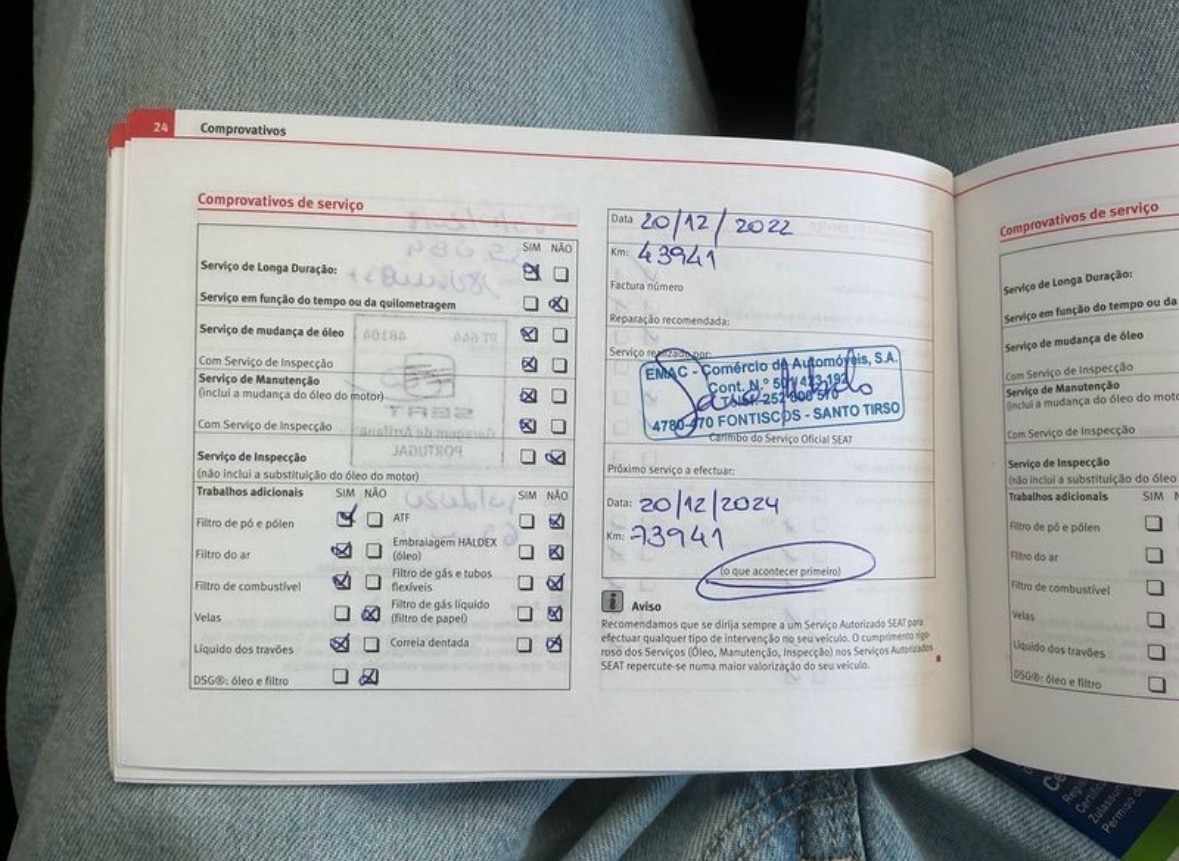 24 Comprovativos
Comprovativos de serviço
SIM NÃO
Serviço de Longa Duração:
Serviço em função do tempo ou da quilometragem
Serviço de mudança de óleo
Com Serviço de Inspecção
Serviço de Manutenção
(inclui a mudança do óleo do motor)
Com Serviço de Inspecção
Serviço de Inspecção
(não inclui a substituição do óleo do motor)
Trabalhos adicionais SIM NÃO SIM NÃO
Filtro de pó e pólen
Filtro do ar
Filtro de combustível
Velas
Líquido dos travões
DSG®: óleo e filtro
ATF
Embraiagem HALDEX
(óleo)
Filtro de gás e tubos
flexíveis
Filtro de gás líquido
(filtro de papel)
Correia dentada
Data 20/12/2022
Km: 43941
Factura número
Reparação recomendada:
Serviço realizado por:
EMAC - Comércio de Automóveis, S.A.
Cont. N.º
4780-470 FONTISCOS - SANTO TIRSO
Carimbo do Serviço Oficial SEAT
Próximo serviço a efectuar:
Data: 20/12/2024
Km: 73941
(o que acontecer primeiro)
Aviso
Recomendamos que se dirija sempre a um Serviço Autorizado SEAT para
efectuar qualquer tipo de intervenção no seu veículo. O cumprimento rigo-
roso dos Serviços (Óleo, Manutenção, Inspecção) nos Serviços Autorizados
SEAT repercute-se numa maior valorização do seu veículo.
Comprovativos de serviço
Serviço de Longa Duração:
Serviço em função do tempo ou da
Serviço de mudança de óleo
Com Serviço de Inspecção
Serviço de Manutenção
(inclui a mudança do óleo do moto
Com Serviço de Inspecção
Serviço de Inspecção
(não inclui a substituição do óleo
Trabalhos adicionais SIM
Filtro de pó e pólen
Filtro do ar
Filtro de combustível
Velas
Líquido dos travões
DSG®: óleo e filtro